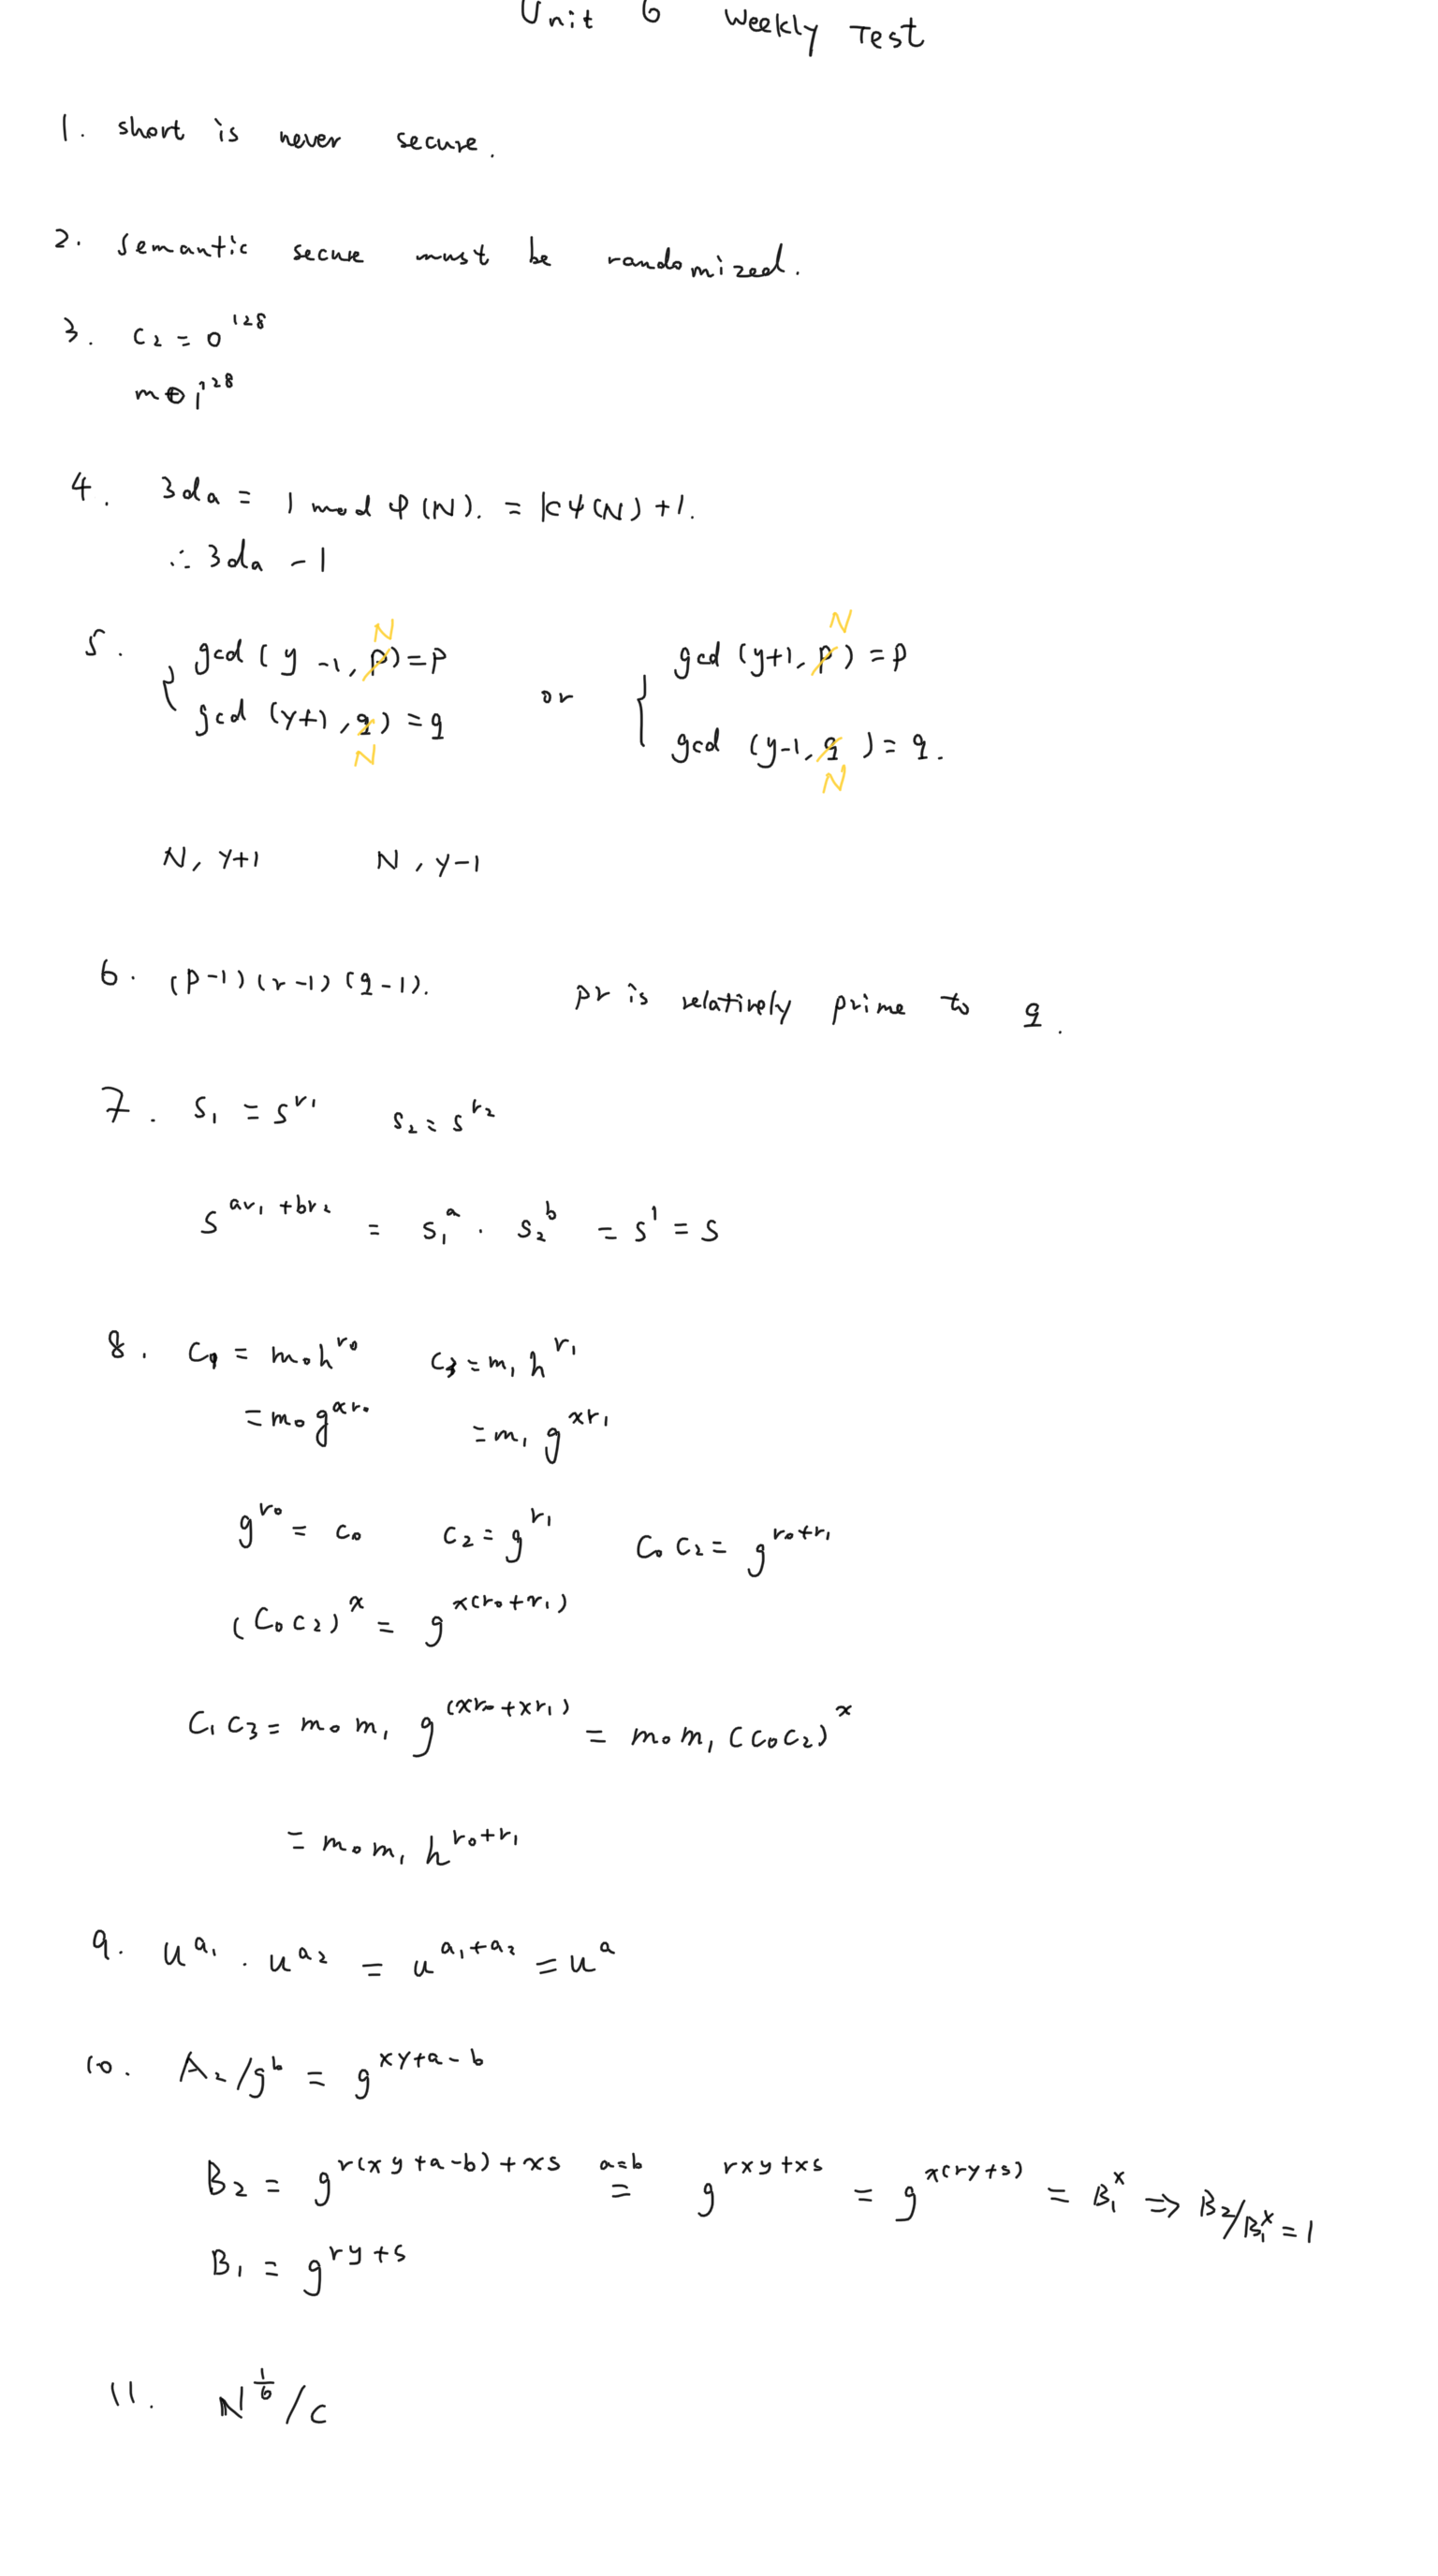 Unit 6 Weekly Test
1. short is never secure.
2. semantic secure must be randomized.
3. c₂ = 0¹²⁸
m⊕1¹²⁸
4. 3dₐ = 1 mod φ(N). = kφ(N)+1.
∴ 3dₐ - 1
5. { gcd (y-1, p N) = p or { gcd (y+1, p N) = p
gcd (y+1, q N) = q gcd (y-1, q N) = q.
N, y+1 N, y-1
6. (p-1)(r-1)(q-1). pr is relatively prime to q.
7. s₁ = s^r₁ s₂ = s^r₂
s^(ar₁+br₂) = s₁^a · s₂^b = s¹ = s
8. c₁ = m₀h^r₀ c₃ = m₁h^r₁
= m₀g^xr₀ = m₁g^xr₁
g^r₀ = c₀ c₂ = g^r₁ c₀c₂ = g^(r₀+r₁)
(c₀c₂)^x = g^x(r₀+r₁)
c₁c₃ = m₀m₁ g^(xr₀+xr₁) = m₀m₁(c₀c₂)^x
= m₀m₁h^(r₀+r₁)
9. u^a₁ · u^a₂ = u^(a₁+a₂) = u^a
10. A₂/g^b = g^(xy+a-b)
B₂ = g^(r(xy+a-b)+xs) a=b = g^(rxy+xs) = g^x(ry+s) = B₁^x ⇒ B₂/B₁^x = 1
B₁ = g^(ry+s)
11. N^(1/6)/c